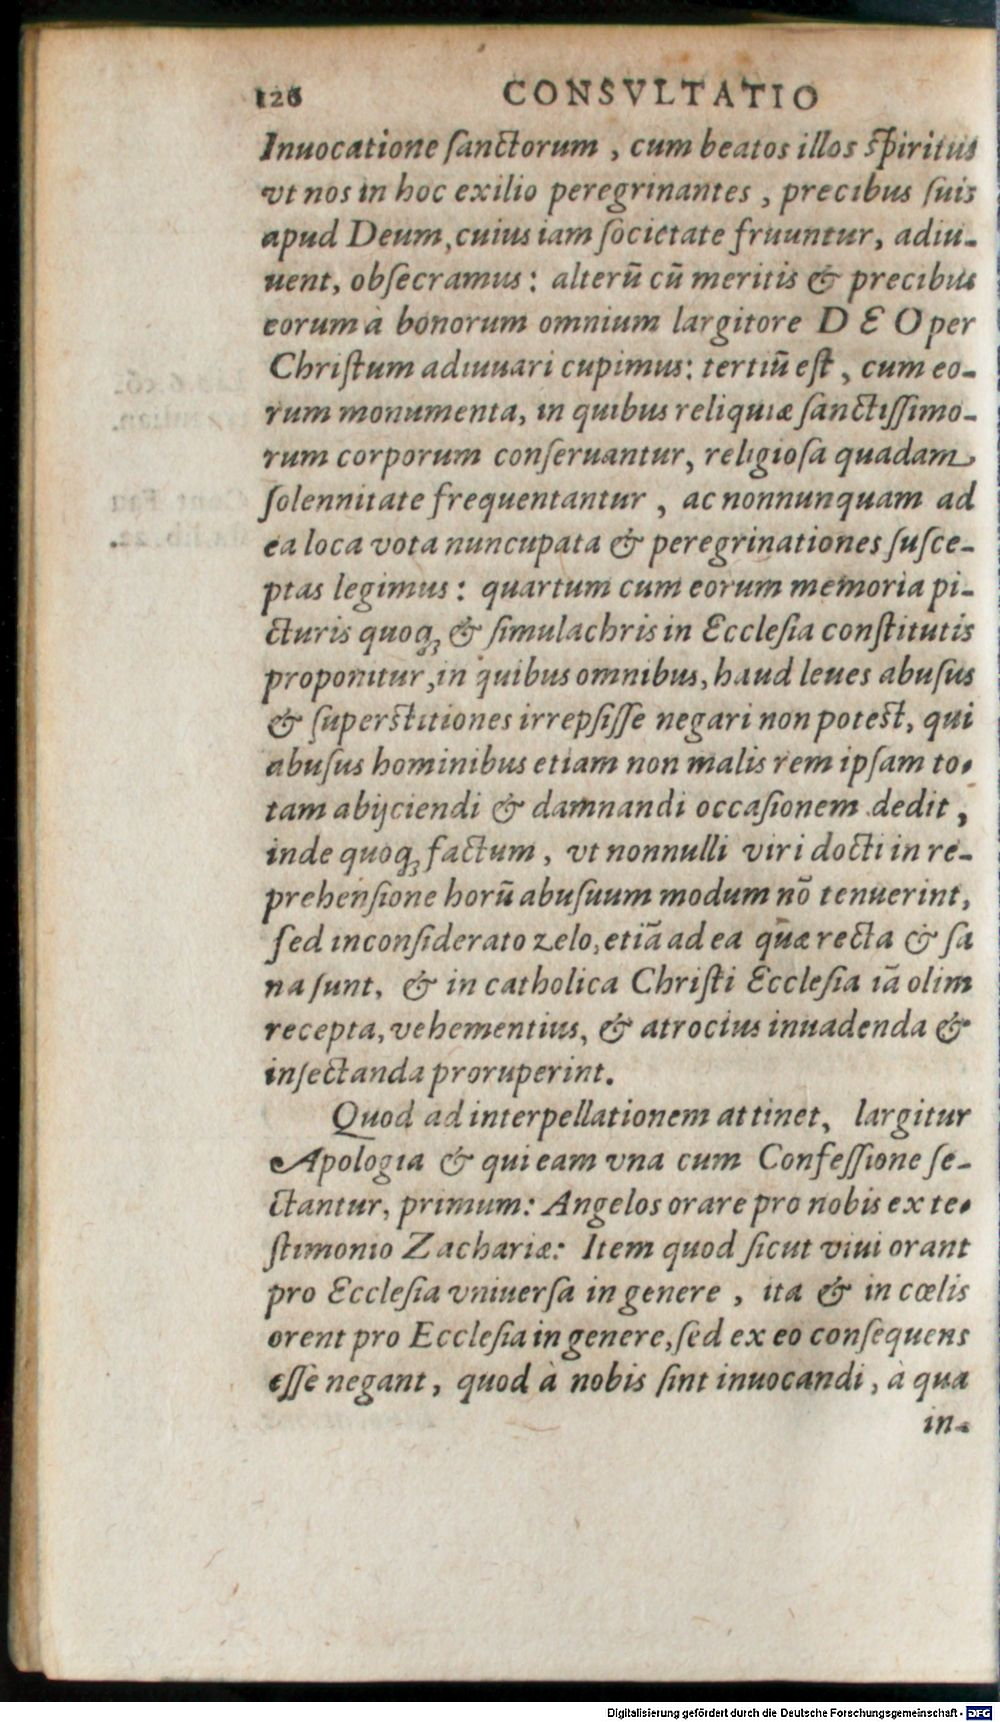 126 CONSVLTATIO
Inuocatione ſanctorum , cum beatos illos ſpiritus
vt nos in hoc exilio peregrinantes , precibus ſuis
apud Deum, cuius iam ſocietate fruuntur, adiu-
uent, obſecramus: alterū cū meritis & precibus
eorum à bonorum omnium largitore DEO per
Chriſtum adiuuari cupimus: tertiū eſt, cum eo-
rum monumenta, in quibus reliquiæ ſanctiſſimo-
rum corporum conſeruantur, religioſa quadam
ſolennitate frequentantur , ac nonnunquam ad
ea loca vota nuncupata & peregrinationes ſuſce-
ptas legimus: quartum cum eorum memoria pi-
cturis quoq₃ & ſimulachris in Eccleſia conſtitutis
proponitur, in quibus omnibus, haud leues abuſus
& ſuperſtitiones irrepſiſſe negari non poteſt, qui
abuſus hominibus etiam non malis rem ipſam to-
tam abijciendi & damnandi occaſionem dedit ,
inde quoq₃ factum, vt nonnulli viri docti in re-
prehenſione horū abuſuum modum nō tenuerint,
ſed inconſiderato zelo, etiā ad ea quæ recta & ſa
na ſunt, & in catholica Chriſti Eccleſia iā olim
recepta, vehementius, & atrocius inuadenda &
inſectanda proruperint.
Quod ad interpellationem attinet, largitur
Apologia & qui eam vna cum Confeſſione ſe-
ctantur, primum: Angelos orare pro nobis ex te-
ſtimonio Zachariæ: Item quod ſicut viui orant
pro Eccleſia vniuerſa in genere , ita & in cœlis
orent pro Eccleſia in genere, ſed ex eo conſequens
eſſe negant, quod à nobis ſint inuocandi, à qua
in-
Digitalisierung gefördert durch die Deutsche Forschungsgemeinschaft - DFG